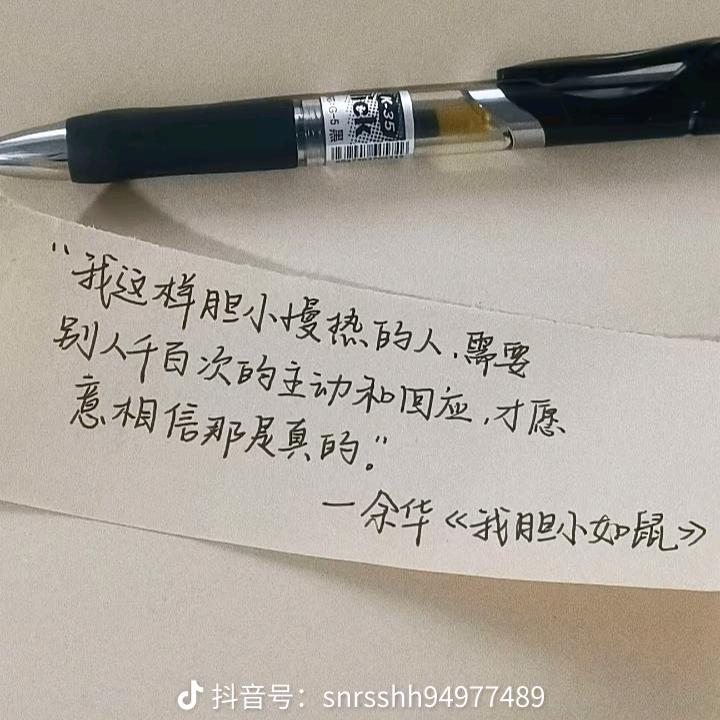 K-35
G-5 黑
“我这样胆小慢热的人，需要
别人千百次的主动和回应，才愿
意相信那是真的。”
—余华《我胆小如鼠》
抖音号：snrsshh94977489